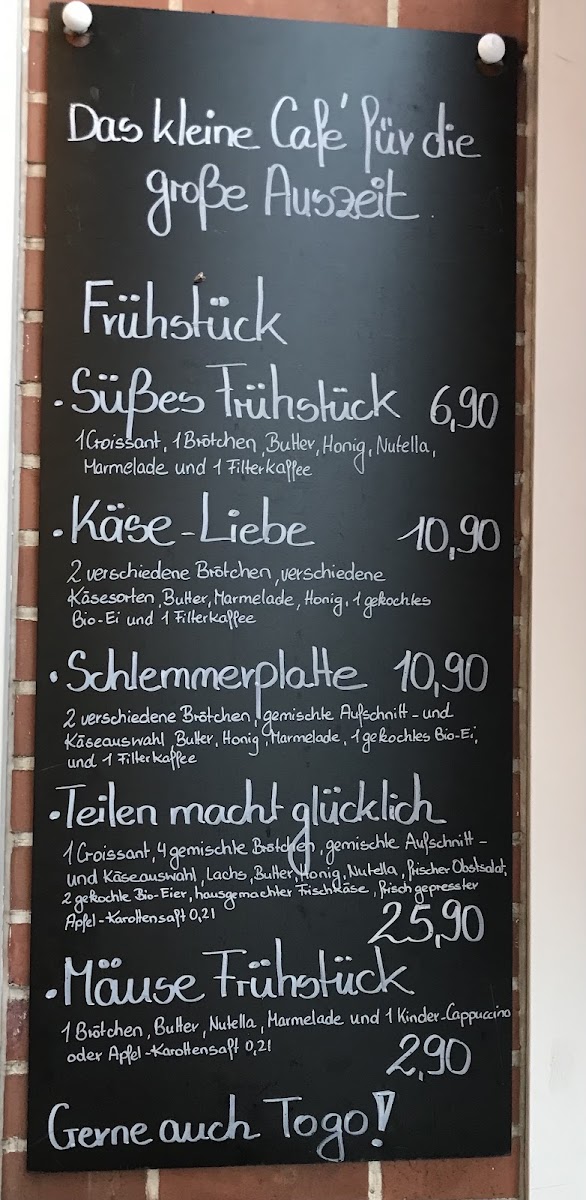 Das kleine Café für die
große Auszeit.
Frühstück
• Süßes Frühstück 6,90
1 Croissant, 1 Brötchen, Butter, Honig, Nutella,
Marmelade und 1 Filterkaffee
• Käse-Liebe 10,90
2 verschiedene Brötchen, verschiedene
Käsesorten, Butter, Marmelade, Honig, 1 gekochtes
Bio-Ei und 1 Filterkaffee
• Schlemmerplatte 10,90
2 verschiedene Brötchen, gemischte Aufschnitt- und
Käseauswahl, Butter, Honig, Marmelade, 1 gekochtes Bio-Ei,
und 1 Filterkaffee
• Teilen macht glücklich
1 Croissant, 4 gemischte Brötchen, gemischte Aufschnitt-
und Käseauswahl, Lachs, Butter, Honig, Nutella, frischer Obstsalat,
2 gekochte Bio-Eier, hausgemachter Frischkäse, frisch gepresster
Apfel-Karottensaft 0,2l
25,90
• Mäuse Frühstück
1 Brötchen, Butter, Nutella, Marmelade und 1 Kinder-Cappuccino
oder Apfel-Karottensaft 0,2l
2,90
Gerne auch Togo!